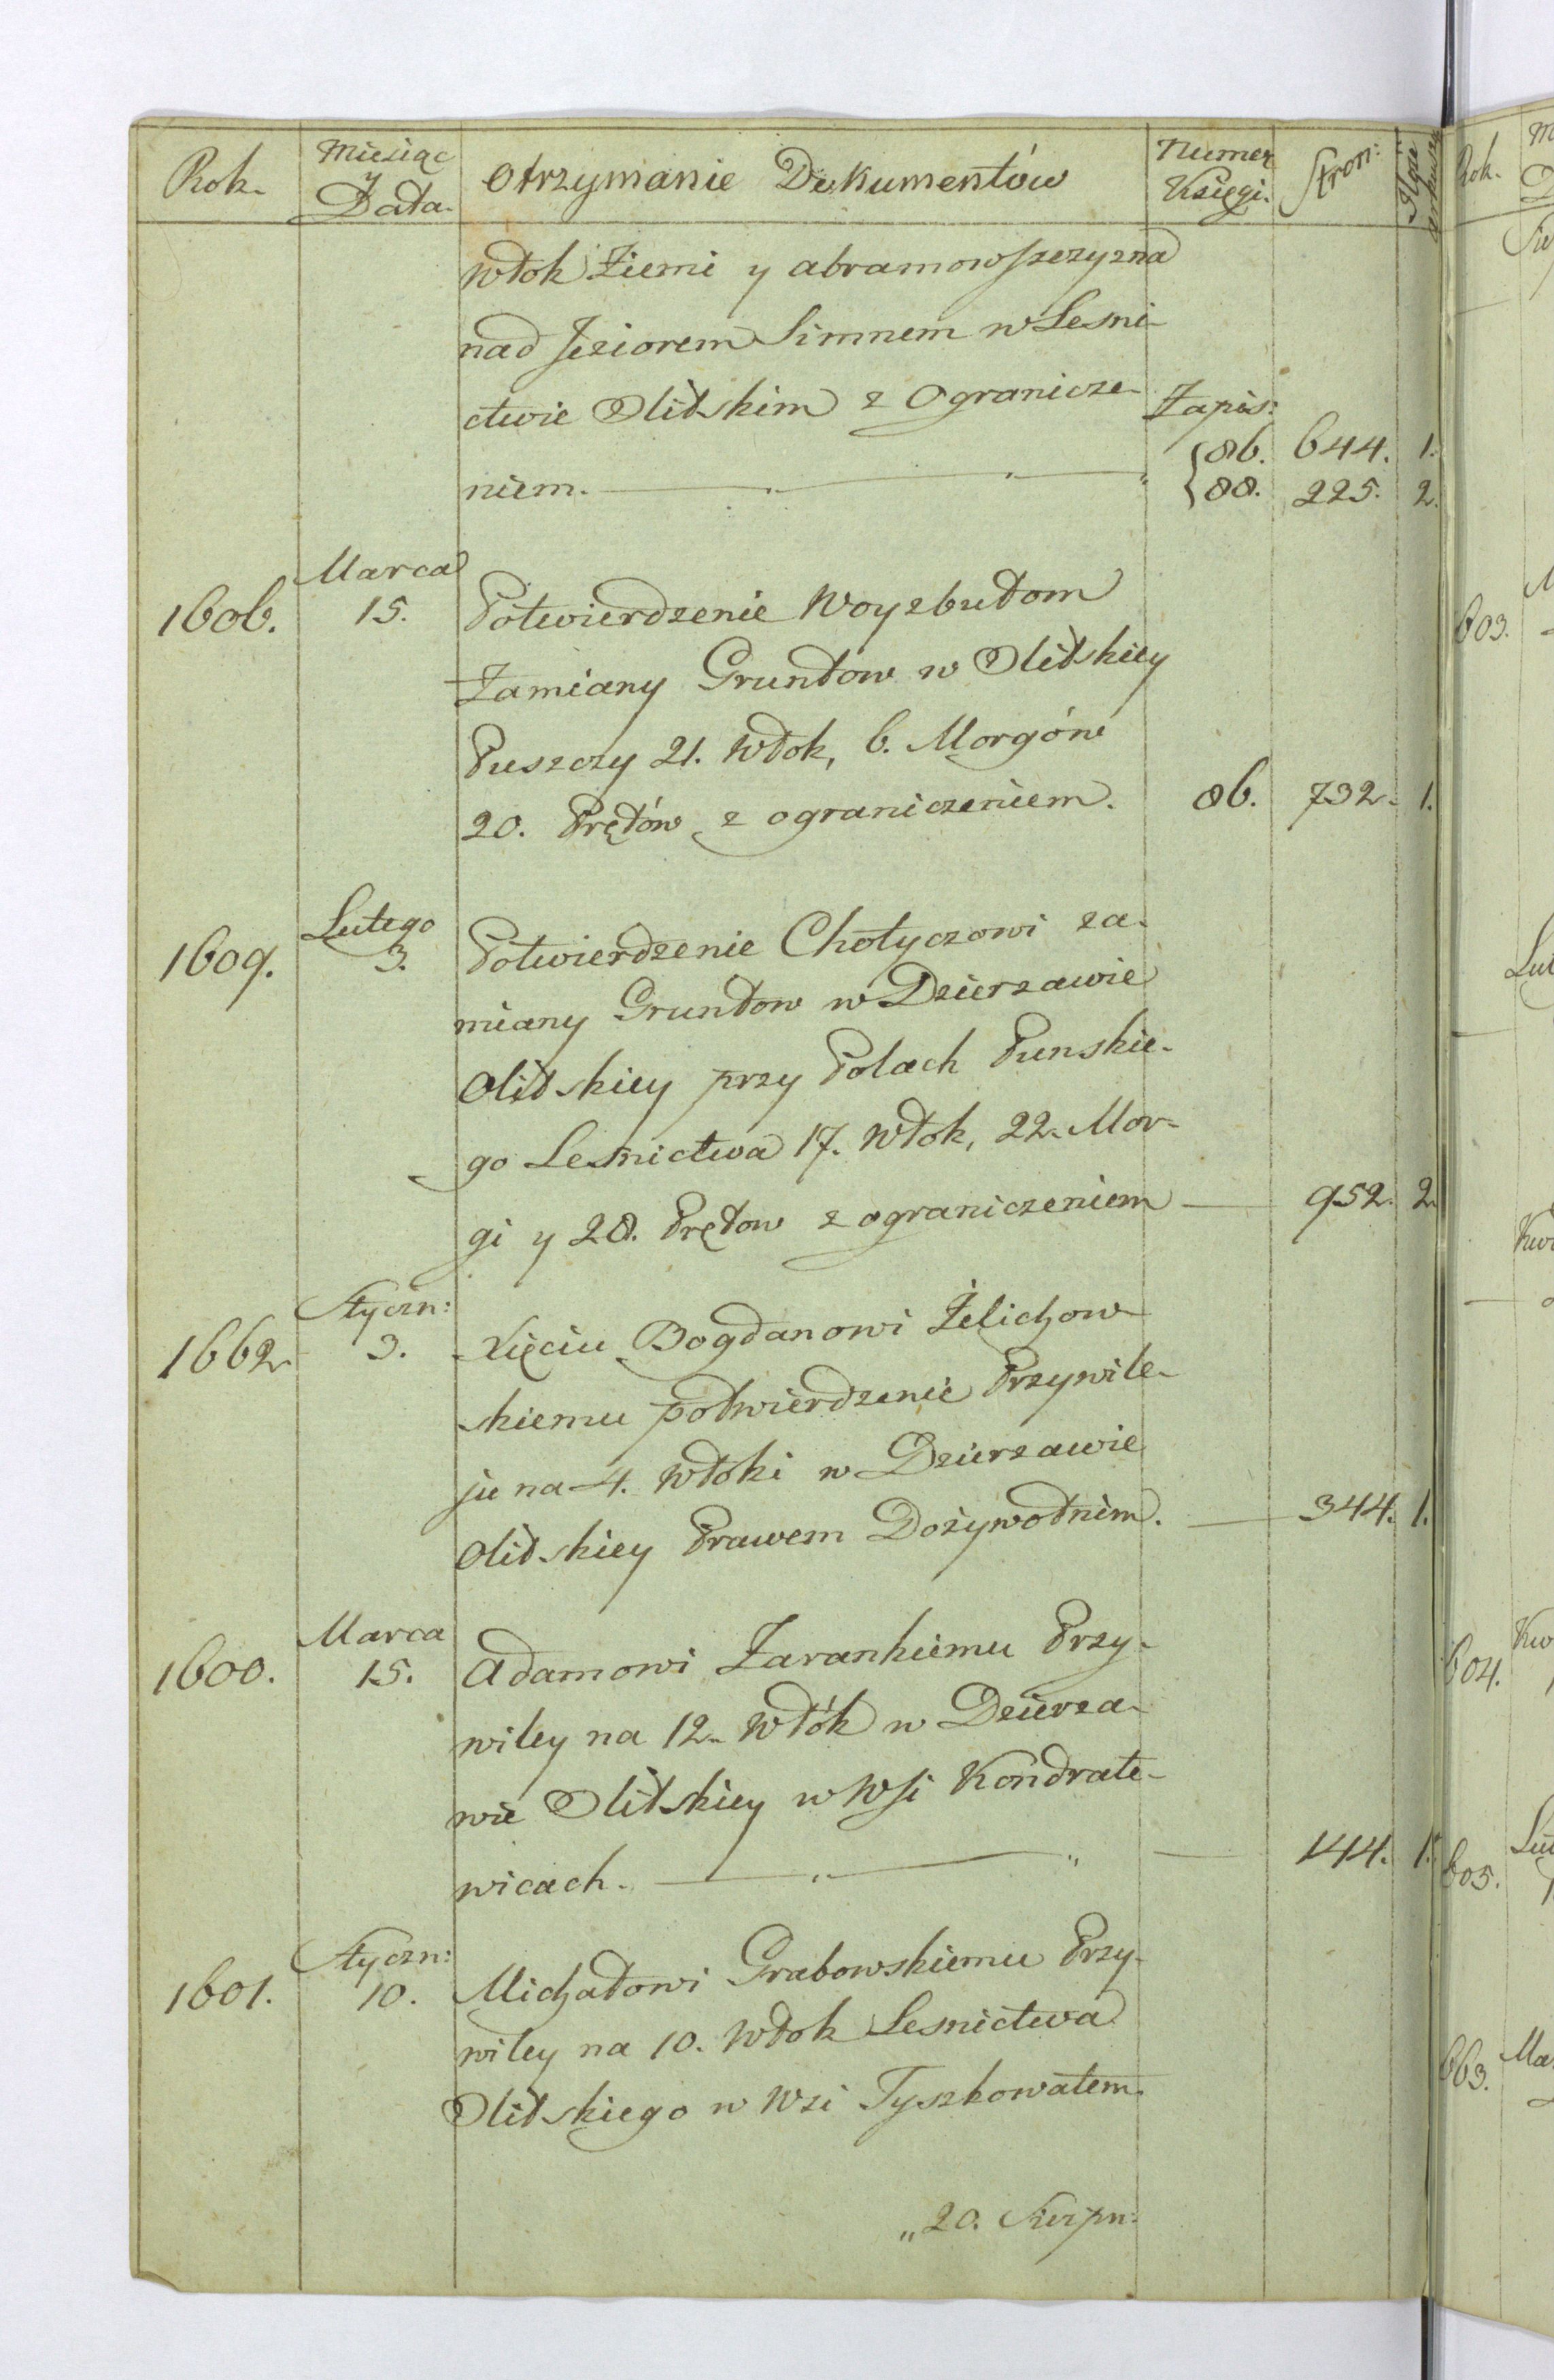 Rok. Miesiąc y Data. Otrzymanie Dokumentów Numer Księgi. Stron: Ilość arkuszy
włok Ziemi y abramowszczyzna
nad Jeziorem Simnem w Lesni-
ctwie Olitskim z Ogranicze- Zapis:
niem. 86. 644. 1.
88. 225. 2.
Marca
1606. 15. Potwierdzenie Woyzbutom
Zamiany Gruntow w Olitskiey
Puszczy 21. Włok, 6. Morgów
20. Prętów z ograniczeniem. 86. 732. 1.
Lutego
1609. 3. Potwierdzenie Chotyczowi za-
miany Gruntow w Dzierzawie
Olitskiey przy Polach Punskie-
go Lesnictwa 17. Włok, 22. Mor-
gi y 28. Prętow z ograniczeniem — 952. 2.
Styczn:
1662. 3. Xięciu Bogdanowi Żelichow-
skiemu potwierdzenie Przywile-
ju na 4. Włoki w Dzierzawie
Olitskiey Prawem Dożywotnim. — 344. 1.
Marca
1600. 15. Adamowi Zarankiemu Przy-
wiley na 12. Włók w Dzierza-
wie Olitskiey w Wsi Kondrate-
wicach. — 144. 1.
Styczn:
1601. 10. Michałowi Grabowskiemu Przy-
wiley na 10. Włok Lesnictwa
Olitskiego w Wsi Tyszkowatem.
„20. Sierpn:
Rok.
603.
Lut
Kwi
604. Kw
605. Lut
663. Ma